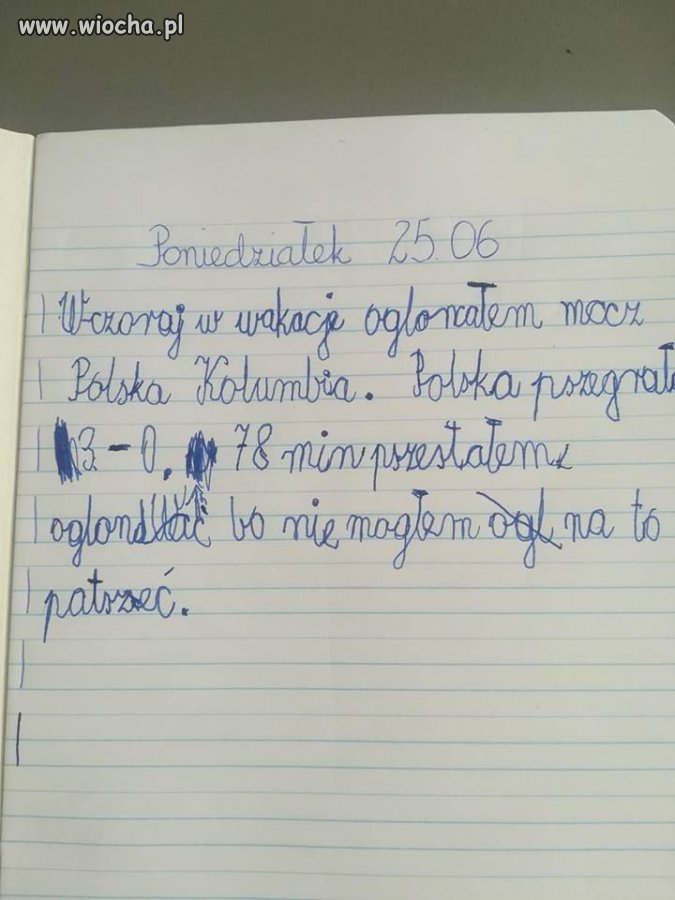 www.wiocha.pl
Poniedziałek 25.06
Wczoraj w wakacje ogloncałem mecz
Polska Kolumbia. Polska pszegrała
3-0. 78 min pszestałem
oglondać bo nie mogłem ogl na to
patrzeć.